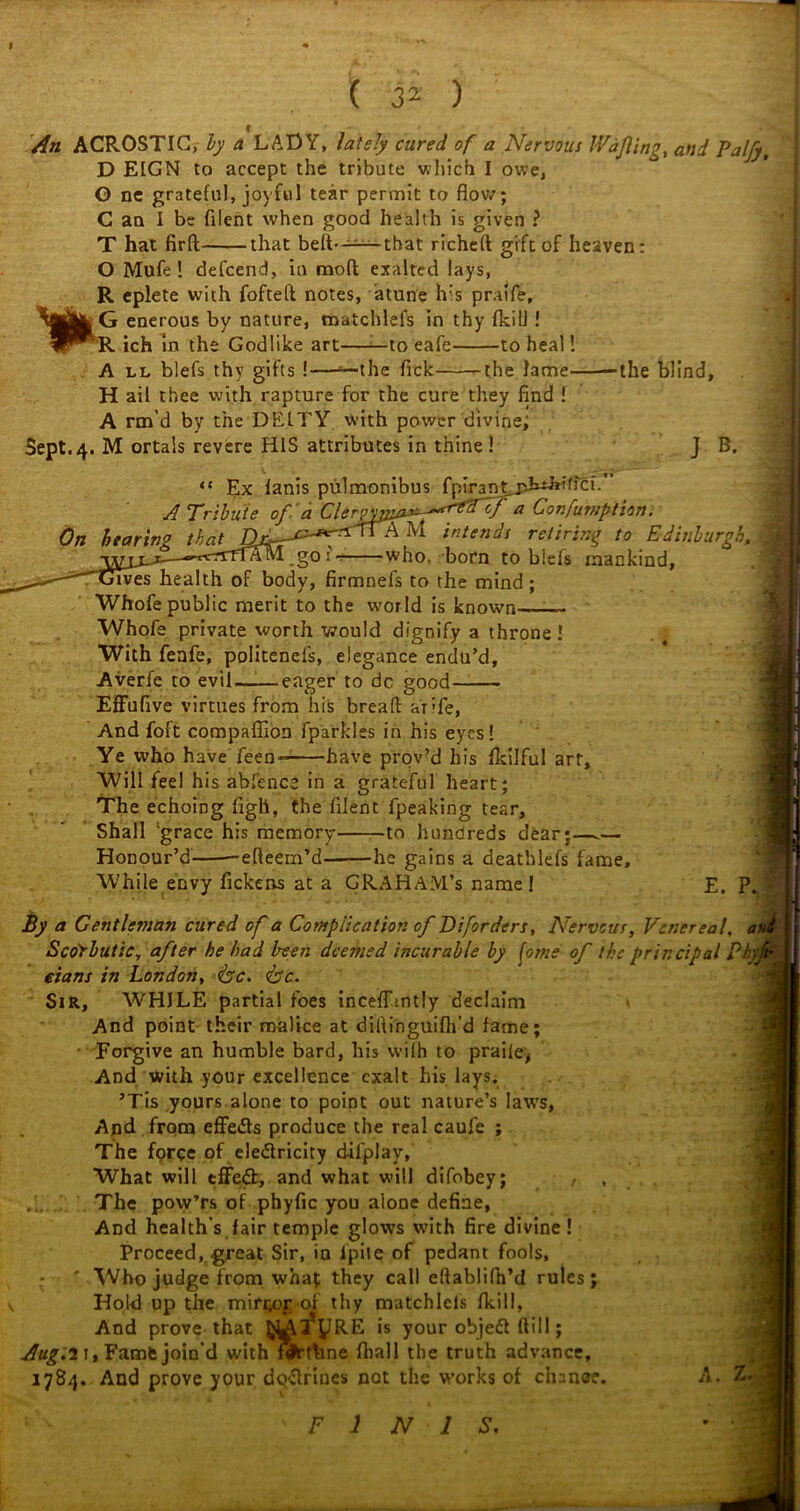 ( 32 )
An ACROSTIC, by a LADY, lately cured of a Nervous Waſting, and Palſy,
D EIGN to accept the tribute which I owe,
O ne grateful, joyful tear permit to flow;
C an I be ſilent when good health is given ?
T hat firſt——that beſt——that richeſt gift of heaven:
O Muſe! deſcend, in moſt exalted lays,
R eplete with ſofteſt notes, atune his praiſe,
G enerous by nature, matchleſs in thy ſkill !
R ich in the Godlike art——to eaſe——to heal!
A LL bleſs thy gifts !——the ſick——the lame——the blind,
H ail thee with rapture for the cure they find !
A rm'd by the DEITY with power divine,
Sept. 4. M ortals revere HIS attributes in thine! J B.
“ Ex Ianis pulmonibus ſpirant
A Tribute of a of a Conſumption.
On hearing that intends retiring to Edinburgh,
go?——who, born to bleſs mankind,
Gives health of body, firmneſs to the mind;
Whoſe public merit to the world is known——
Whoſe private worth would dignify a throne!
With ſenſe, politeneſs, elegance endu'd,
Averſe to evil——eager to do good——
Effuſive virtues from his breaſt ariſe,
And ſoft compaſſion ſparkles in his eyes!
Ye who have ſeen——have prov'd his ſkilful art,
Will feel his abſence in a grateful heart;
The echoing ſigh, the ſilent ſpeaking tear,
Shall grace his memory——to hundreds dear;——
Honour'd——eſteem'd——he gains a deathleſs fame,
While envy ſickens at a GRAHAM's name! E. P.
By a Gentleman cured of a Complication of Diſorders, Nervous, Venereal, and
Scorbutic, after he had been deemed incurable by ſome of the principal Phyſi-
cians in London, &c. &c.
SIR, WHILE partial foes inceſſantly declaim
And point their malice at diſtinguiſh'd fame;
Forgive an humble bard, his wiſh to praiſe,
And with your excellence exalt his lays.
'Tis yours alone to point out nature's laws,
And from effects produce the real cauſe ;
The force of electricity diſplay,
What will effect, and what will diſobey;
The pow'rs of phyſic you alone define,
And health's fair temple glows with fire divine!
Proceed, great Sir, in ſpite of pedant fools,
Who judge from what they call eſtabliſh'd rules;
Hold up the mirror of thy matchleſs ſkill,
And prove that NATURE is your object ſtill;
Aug. 21, Fame join'd with fortune ſhall the truth advance,
1784. And prove your doctrines not the works of chance. A. Z.
F I N I S.